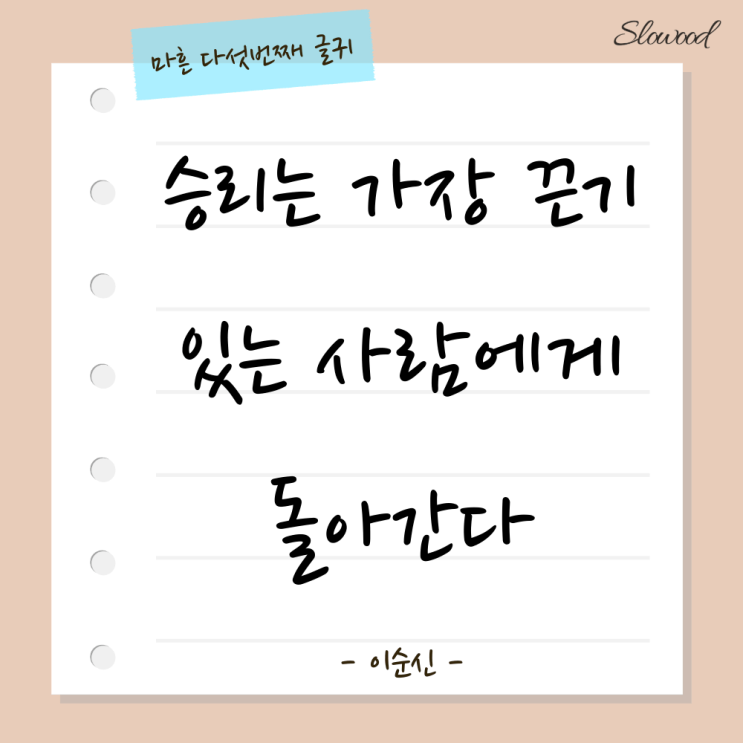 Slowood
마흔 다섯번째 글귀
승리는 가장 끈기
있는 사람에게
돌아간다
- 이순신 -